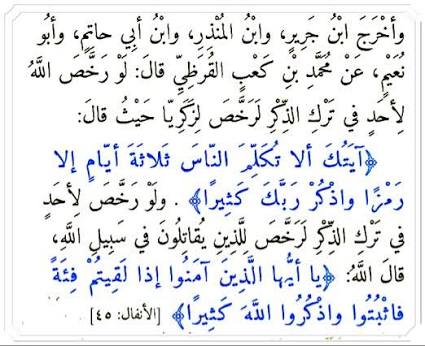 وأخْرَجَ ابْنُ جَرِيرٍ، وابْنُ المُنْذِرِ، وابْنُ أبِي حاتِمٍ، وأبُو
نُعَيْمٍ، عَنْ مُحَمَّدِ بْنِ كَعْبٍ القُرَظِيِّ قالَ: لَوْ رَخَّصَ اللَّهُ
لِأحَدٍ في تَرْكِ الذِّكْرِ لَرَخَّصَ لِزَكَرِيّا حَيْثُ قالَ:
﴿آيَتُكَ ألا تُكَلِّمَ النّاسَ ثَلاثَةَ أيّامٍ إلا
رَمْزًا واذْكُرْ رَبَّكَ كَثِيرًا﴾ . ولَوْ رَخَّصَ لِأحَدٍ
في تَرْكِ الذِّكْرِ لَرَخَّصَ لِلَّذِينَ يُقاتِلُونَ في سَبِيلِ اللَّهِ،
قالَ اللَّهُ: ﴿يا أيُّها الَّذِينَ آمَنُوا إذا لَقِيتُمْ فِئَةً
فاثْبُتُوا واذْكُرُوا اللَّهَ كَثِيرًا﴾ [الأنفال: ٤٥]